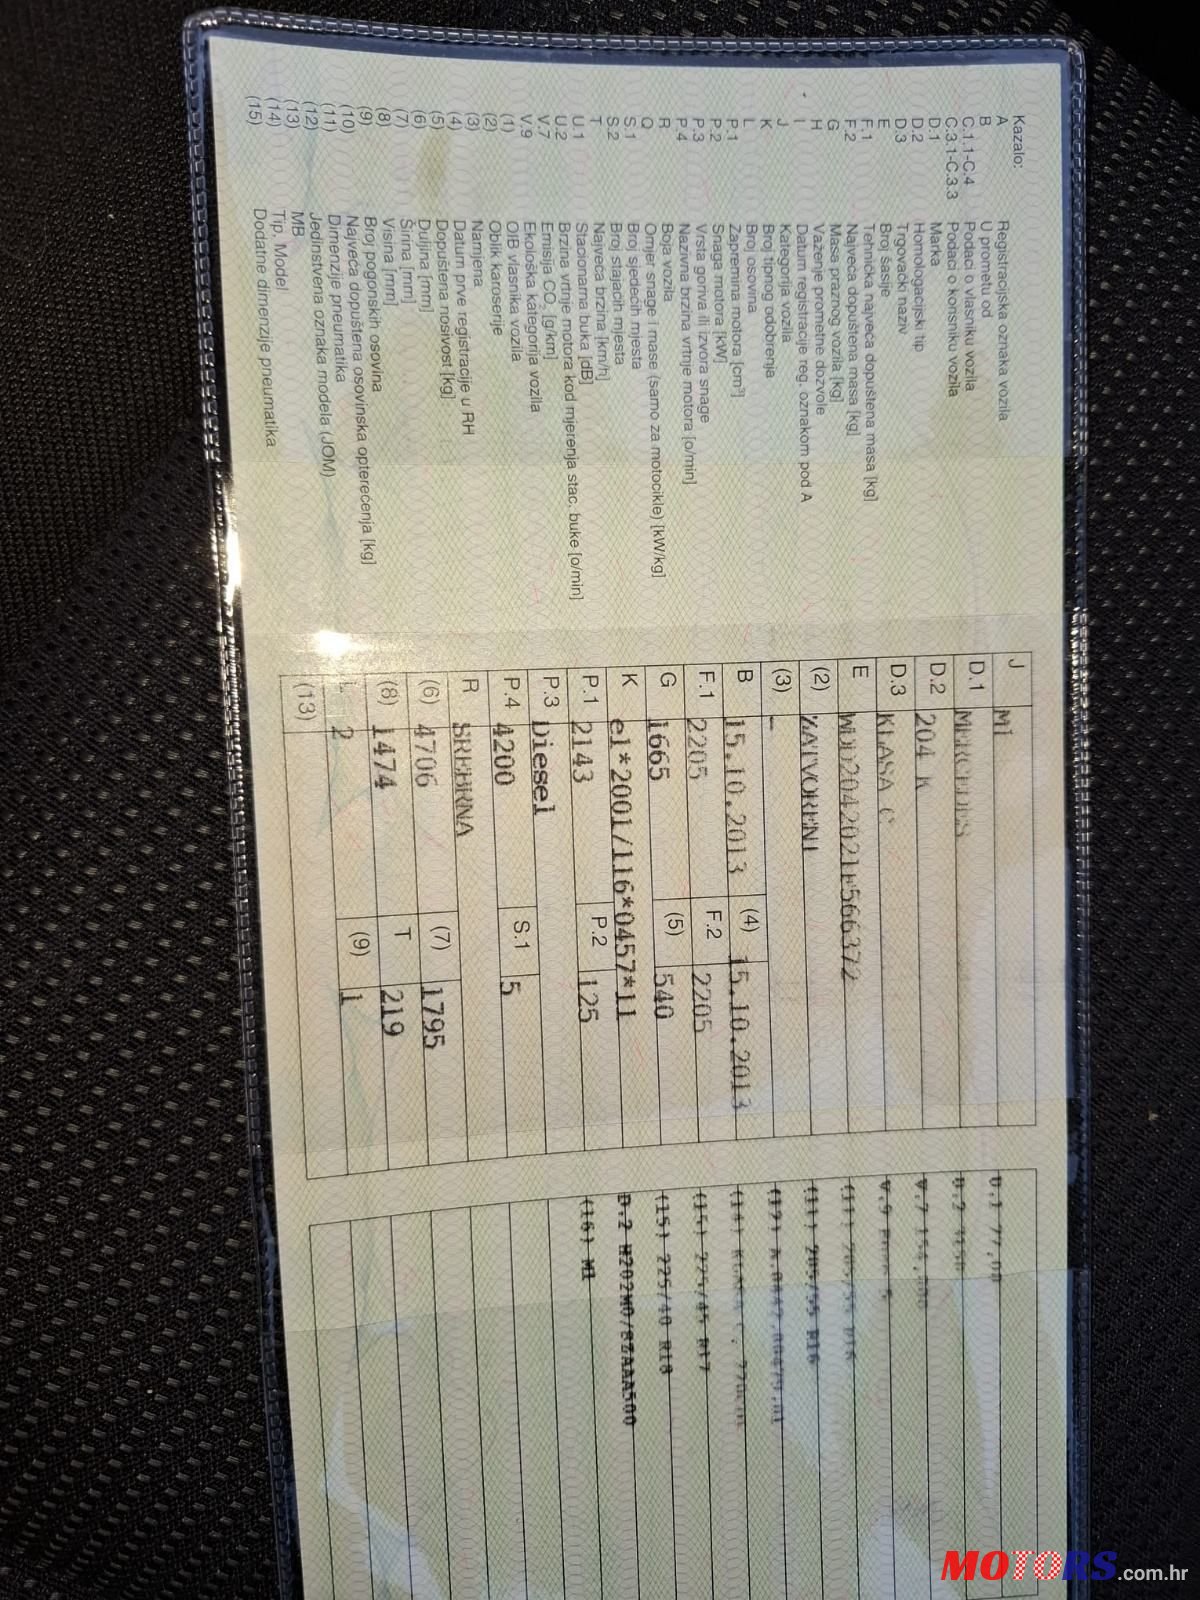 Kazalo:
A Registracijska oznaka vozila
B U prometu od
C.1.1-C.4 Podaci o vlasniku vozila
C.3.1-C.3.3 Podaci o korisniku vozila
D.1 Marka
D.2 Homologacijski tip
D.3 Trgovački naziv
E Broj šasije
F.1 Tehnička najveća dopuštena masa [kg]
F.2 Najveća dopuštena masa [kg]
G Masa praznog vozila [kg]
H Važenje prometne dozvole
I Datum registracije reg. oznakom pod A
J Kategorija vozila
K Broj tipnog odobrenja
L Broj osovina
P.1 Zapremina motora [cm³]
P.2 Snaga motora [kW]
P.3 Vrsta goriva ili izvora snage
P.4 Nazivna brzina vrtnje motora [o/min]
R Boja vozila
Q Omjer snage i mase (samo za motocikle) [kW/kg]
S.1 Broj sjedećih mjesta
S.2 Broj stajaćih mjesta
T Najveća brzina [km/h]
U.1 Stacionarna buka [dB]
U.2 Brzina vrtnje motora kod mjerenja stac. buke [o/min]
V.7 Emisija CO₂ [g/km]
V.9 Ekološka kategorija vozila
(1) OIB vlasnika vozila
(2) Oblik karoserije
(3) Namjena
(4) Datum prve registracije u RH
(5) Dopuštena nosivost [kg]
(6) Duljina [mm]
(7) Širina [mm]
(8) Visina [mm]
(9) Broj pogonskih osovina
(10) Najveća dopuštena osovinska opterećenja [kg]
(11) Dimenzije pneumatika
(12) Jedinstvena oznaka modela (JOM)
(13) MB
(14) Tip, Model
(15) Dodatne dimenzije pneumatika
J M1
D.1 MERCEDES
D.2 204 K
D.3 KLASA C
E WDD2042021F566372
(2) ZATVORENI
(3) -
B 15.10.2013 (4) 15.10.2013
F.1 2205 F.2 2205
G 1665 (5) 540
K e1*2001/116*0457*11
P.1 2143 P.2 125
P.3 Diesel
P.4 4200 S.1 5
R SREBRNA
(6) 4706 (7) 1795
(8) 1474 T 219
L 2 (9) 1
(13)
(11) 205/55 R16
(15) 225/45 R17
(15) 225/40 R18
D.2 H202M0/8ZAAA500
(16) M1
MOTORS.com.hr